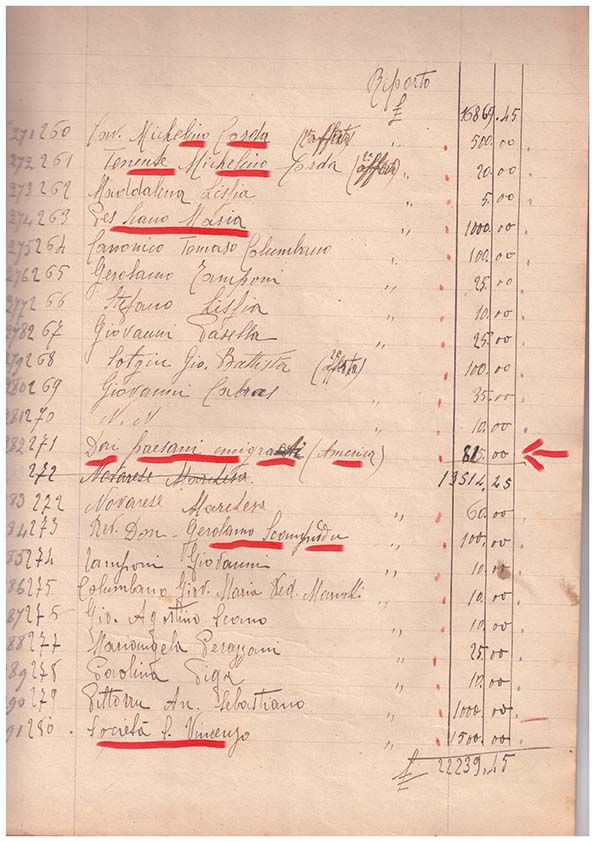 Riporto
£ 16869.45
271 260 Cav. Michelino Corda (offerta) " 500.00
272 261 Tenente Michelino Corda (2ª offerta) " 20.00
273 262 Maddalena Lissia " 5.00
274 263 Scano Maria " 1000.00
275 264 Canonico Tomaso Columbano " 100.00
276 265 Gerolamo Tamponi " 25.00
277 266 Stefano Lissia " 10.00
278 267 Giovanni Pasella " 25.00
279 268 Sotgiu Gio. Battista (2ª offerta) " 100.00
280 269 Giovanni Cabras " 35.00
281 270 N. N. " 10.00
282 271 Don paesani emigrati (America) 815.00
272 Novarese Marchese 19514.45
83 272 Novarese Marchese " 60.00
84 273 Rev. Don Gerolamo Scampuddu " 100.00
85 274 Tamponi Giovanni " 10.00
86 275 Columbano Giov. Maria Ved. " 10.00
87 276 Gio. Agostino Scano " 10.00
88 277 Mariangela " 25.00
89 278 Paolina Piga " 10.00
90 279 Pittorru An. Sebastiano " 1000.00
91 280 Società S. Vincenzo " 1500.00
£ 22239.45